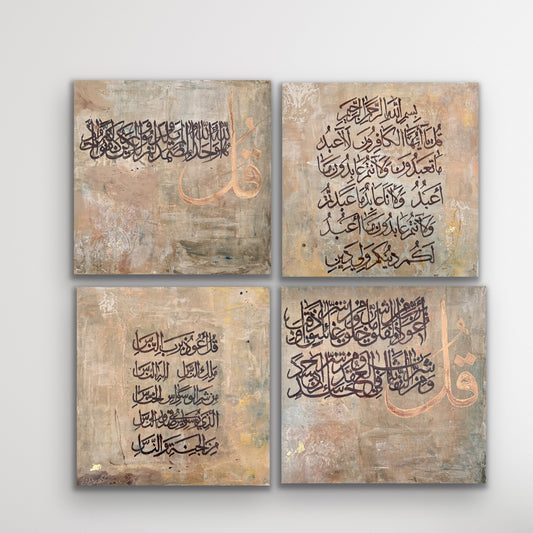 بسم الله الرحمن الرحيم
قل يا أيها الكافرون لا أعبد
ما تعبدون ولا أنتم عابدون ما
أعبد ولا أنا عابد ما عبدتم
ولا أنتم عابدون ما أعبد
لكم دينكم ولي دين
قل
هو الله أحد الله الصمد لم يلد ولم يولد ولم يكن له كفوا أحد
قل
أعوذ برب الفلق من شر ما خلق ومن شر غاسق إذا وقب
ومن شر النفاثات في العقد ومن شر حاسد إذا حسد
قل أعوذ برب الناس
ملك الناس إله الناس
من شر الوسواس الخناس
الذي يوسوس في صدور الناس
من الجنة والناس